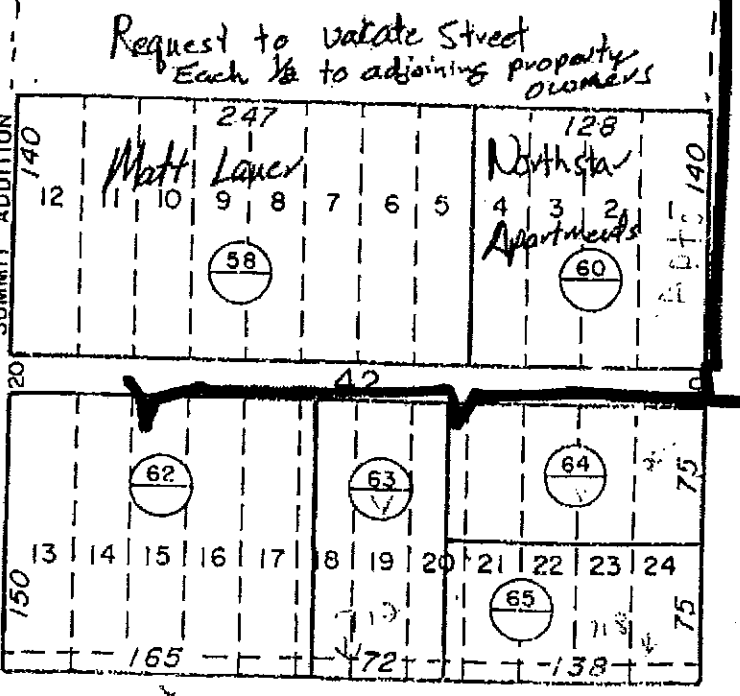 Request to vacate Street
Each 1/2 to adjoining property
owners
SUMMIT ADDITION
140
247
128
140
Matt Lauer
Northstar
12 11 10 9 8 7 6 5 4 3 2
Apartments
58
60
20
42
62
63
64
75
13 14 15 16 17 18 19 20 21 22 23 24
150
65
75
165
72
138